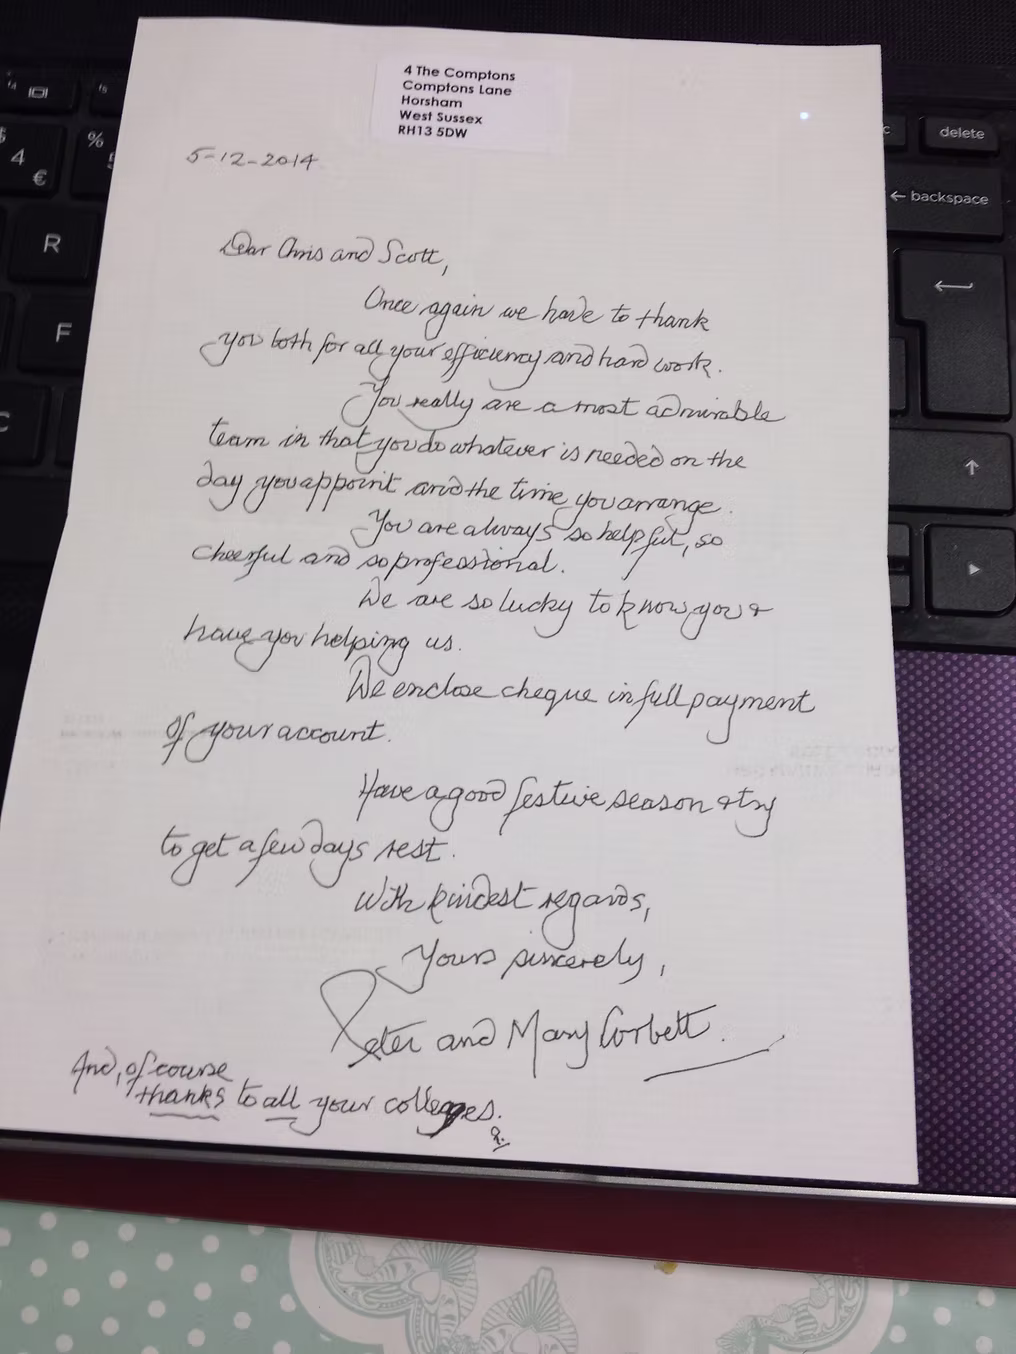 4 The Comptons
Comptons Lane
Horsham
West Sussex
RH13 5DW
5-12-2014
Dear Chris and Scott,
Once again we have to thank
you both for all your efficiency and hard work.
You really are a most admirable
team in that you do whatever is needed on the
day you appoint and the time you arrange.
You are always so helpful, so
cheerful and so professional.
We are so lucky to know you &
have you helping us.
We enclose cheque in full payment
of your account.
Have a good festive season & try
to get a few days rest.
With kindest regards,
Yours sincerely,
Peter and Mary Corbett.
And, of course
thanks to all your colleges.
P.
%
4
€
R
F
C
delete
← backspace